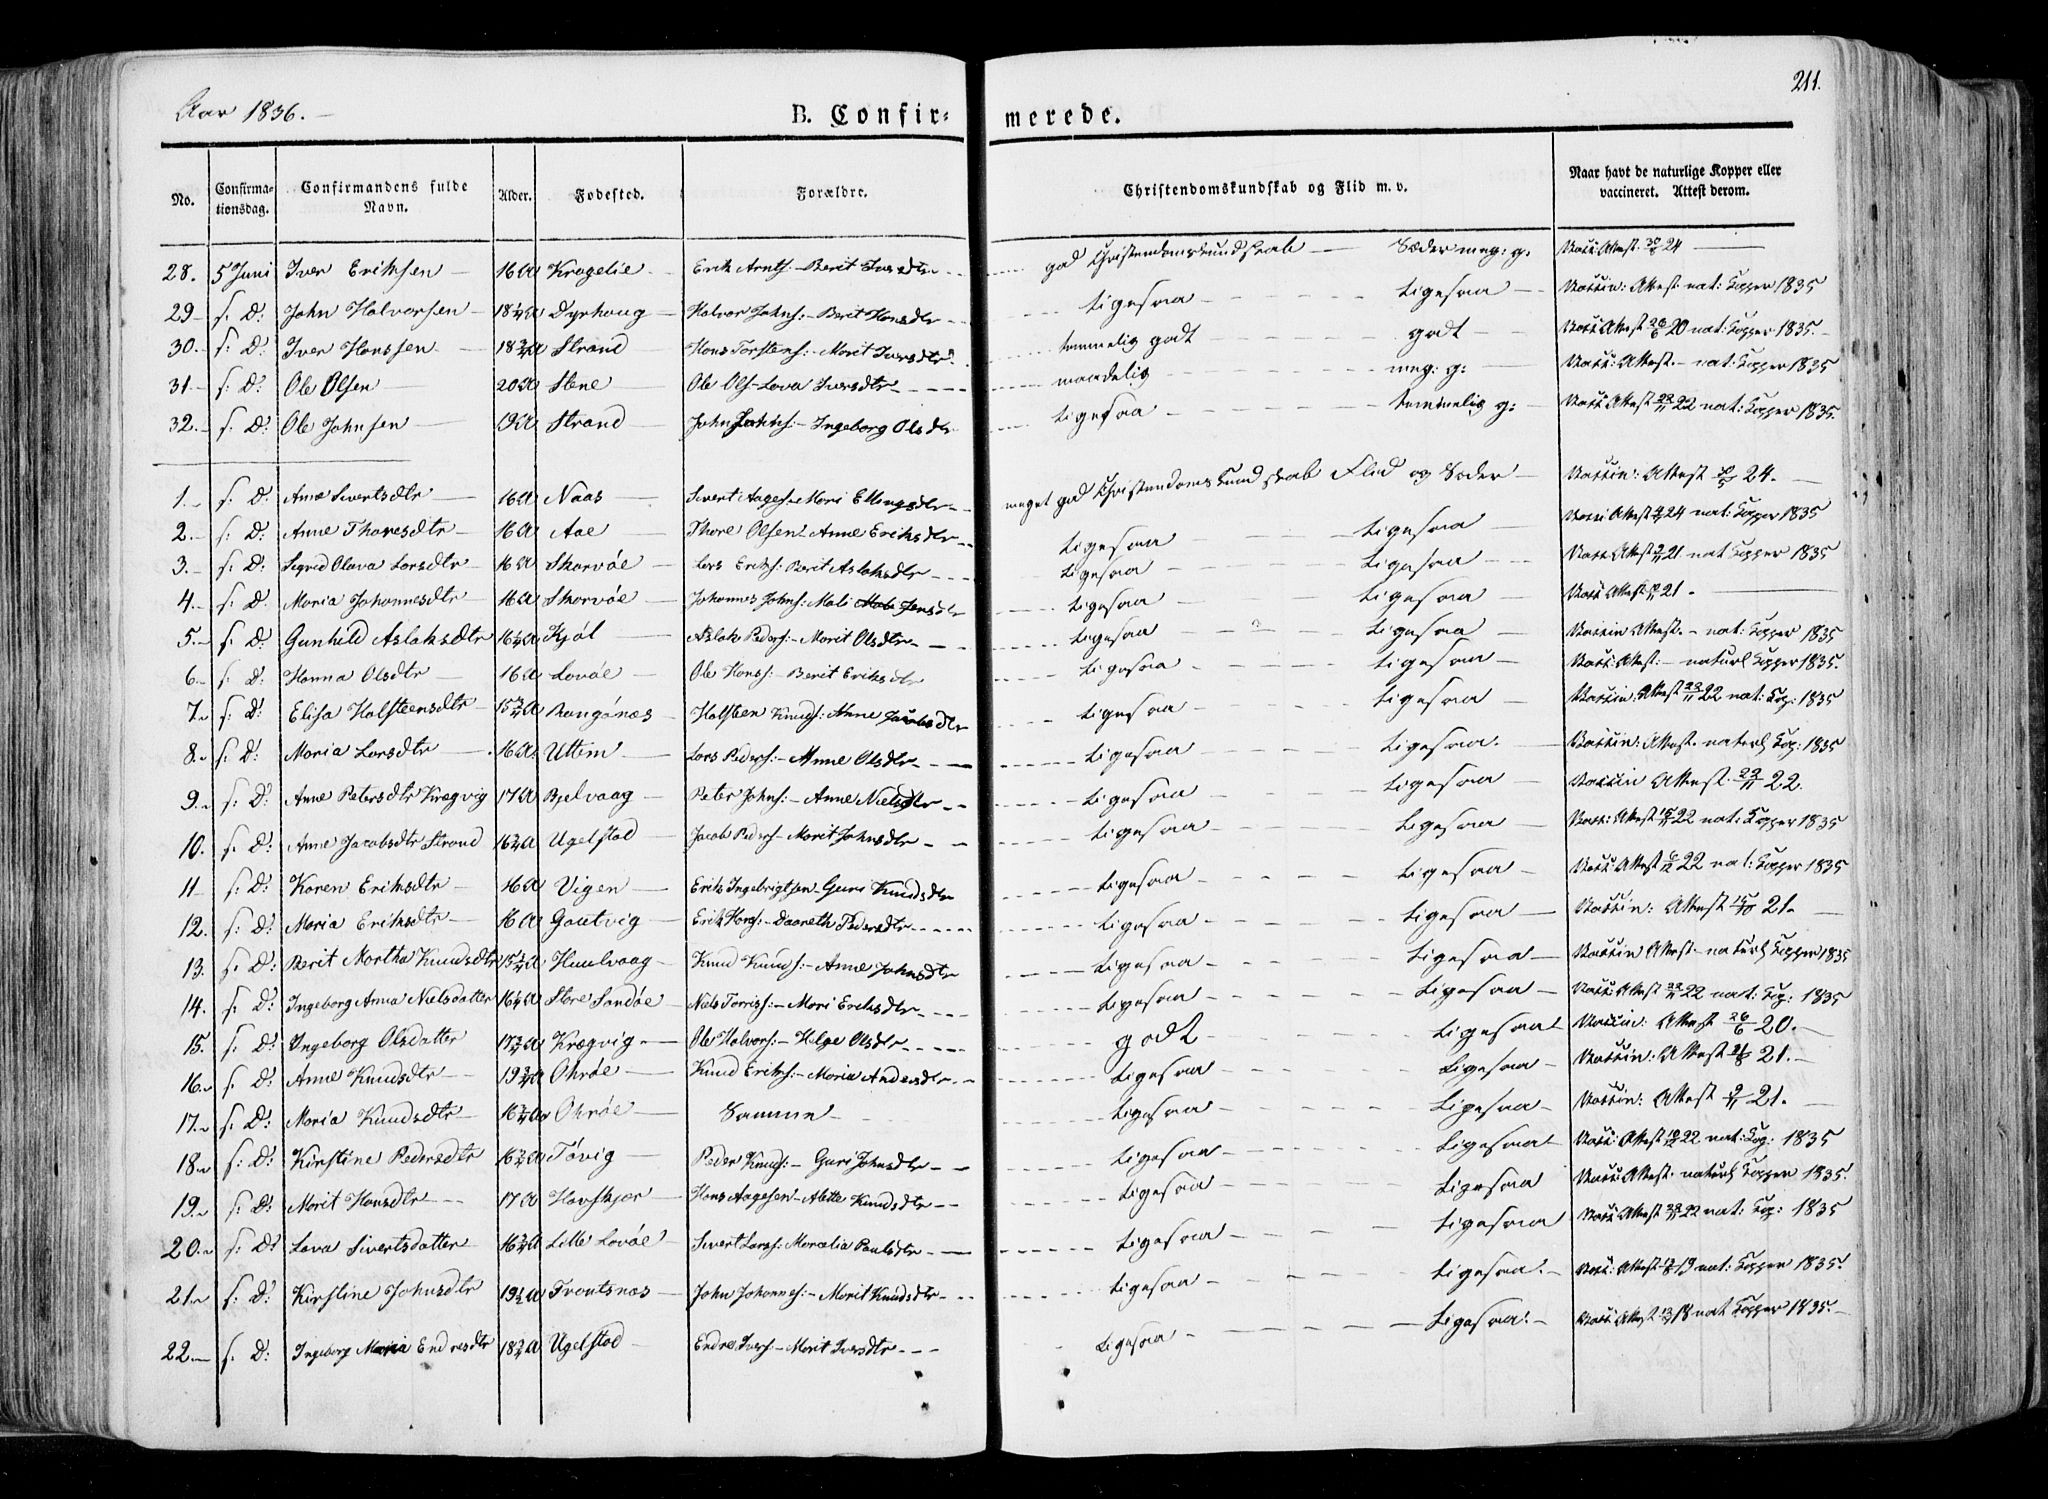 Aar 1836.
B. Confirmerede.
211.
No. | Confirmationsdag. | Confirmandens fulde Navn. | Alder. | Fødested. | Forældre. | Christendomskundskab og Flid m. v. | Naar havt de naturlige Kopper eller vaccineret. Attest derom.
28. 5 Juni Iver Eriksen 16 A Kragelie Erik Arnts: Berit Iversdtr god Christendomskundskab Sæder meg: g: Vacc: Attest 24
29 s: D: John Halvorsen 18¼ A Dyrhoug Halvor Johns: Berit Hansdtr ligesaa ligesaa Vaccin: Attest nat: Kopper 1835
30. s: D: Iver Hanssen 18¾ A Strand Hans Torstens: Marit Iversdtr temmelig godt godt Vacc: Attest 26/6 20 nat: Kopper 1835.
31. s: D: Ole Olsen 20 A Stene Ole Ols Lava Iversdtr maadelig meg: g: Vacc: Attest. nat: Kopper 1835
32. s: D: Ole Johnsen 19 A Strand John Johns: Ingeborg Olsdtr ligesaa temmelig g: Vacc: Attest 22/11 22 nat: Kopper 1835.
1. s: D: Ane Sivertsdtr 16 A Naas Sivert Aages: Mari Ellingsdtr meget god Christendomskundskab Flid og Sæder Vaccin: Attest 24.
2. s: D: Anne Thoresdtr 16 A Aae Thore Olsen Anne Eriksdtr ligesaa ligesaa Vacci Attest 24 nat: Kopper 1835
3. s: D: Sigrid Olava Larsdtr 16 A Skarvøe Lars Eriks: Berit Aslaksdtr ligesaa ligesaa Vacc Attest 21 nat Kopper 1835
4. s: D. Maria Johannesdtr 16 A Skarvøe Johannes Johns: Mali Jensdtr ligesaa ligesaa Vacc Attest 21.
5. s: D: Gunhild Aslaksdtr 16¼ A Kjøl Aslak Peders: Marit Olsdtr ligesaa ligesaa Vaccin Attest. nat: Kopper 1835
6. s: D: Hanna Olsdtr 16 A Lovøe Ole Hans: Berit Eriksdtr ligesaa ligesaa Vacc: Attest: naturl Kopper 1835.
7. s: D: Elisa Halsteensdtr 15¾ A Rangönæs Halsteen Knuds: Anne Jacobsdtr ligesaa ligesaa Vaccin: Attest 22/11 22 nat: Kop: 1835
8. s: D: Maria Larsdtr 16 A. Uttem Lars Peders: Anne Olsdtr ligesaa ligesaa. Vaccin: Attest. naturl Kop: 1835
9. s: D: Anne Petersdtr Krægvig 17 A Bjelvaag Peter Johns: Anne Nielsdtr ligesaa ligesaa Vaccin Attest. 22/11 22.
10. s: D: Anne Jacobsdtr Strand 16 A Ugelstad Jacob Peders Marit Johnsdtr ligesaa ligesaa Vacc: Attest 22 nat: Kopper 1835
11 s: D: Karen Eriksdtr 16 A Vigen Erik Ingebrigtsen Guri Knudsdtr ligesaa ligesaa Vacc: Attest 22 nat: Kopper 1835
12. s: D: Maria Eriksdtr 16 A Gautvig Erik Hans: Daareth Pedersdtr ligesaa ligesaa Vaccin: Attest 21.
13. s: D: Berit Martha Knudsdtr 15 A Huulvaag Knud Knuds: Anne Johnsdtr ligesaa ligesaa Vaccin Attest naturl Kopper 1835
14. s: D: Ingeborg Anna Nielsdatter 16¼ A Store Sandøe Niels Torris: Mari Eriksdtr ligesaa ligesaa Vacc: Attest 22 nat: Kop: 1835
15. s: D: Ingeborg Olsdatter 17 A Krægvig Ole Halvors: Helge Olsdtr godt ligesaa Vaccin: Attest 26/6 20.
16. s: D: Anne Knudsdtr 19¾ A Ohrøe Knud Eriks: Maria Andersdtr ligesaa ligesaa Vaccin: Attest 21.
17. s: D: Maria Knudsdtr 16 A Ohrøe Samme ligesaa ligesaa Vaccin: Attest 21.
18. s: D: Kirstine Pedersdtr 16 A Tøvig Peder Knuds: Guri Johnsdtr ligesaa ligesaa Vacc: Attest 22 nat: Kop: 1835
19. s: D: Marit Hansdtr 17 A Havskjær Hans Aagesen Alette Knudsdtr ligesaa ligesaa Vacc: Attest. naturl Kopper 1835.
20. s: D: Lava Sivertsdatter 16¾ A Lille Lovøe Sivert Lars: Marælia Paulsdtr ligesaa ligesaa Vacc: Attest 22 nat: Kop: 1835
21. s: D: Kirstine Johnsdtr 19½ A Trontsnæs John Johannes: Marit Knudsdtr ligesaa ligesaa. Vacc: Attest 19 nat: Kopper 1835.
22. s: D: Ingeborg Maria Endresdtr 18¾ A Ugelstad Endre Ivers: Marit Iversdtr ligesaa ligesaa. Vacc: Attest 18 nat Kopper 1835.